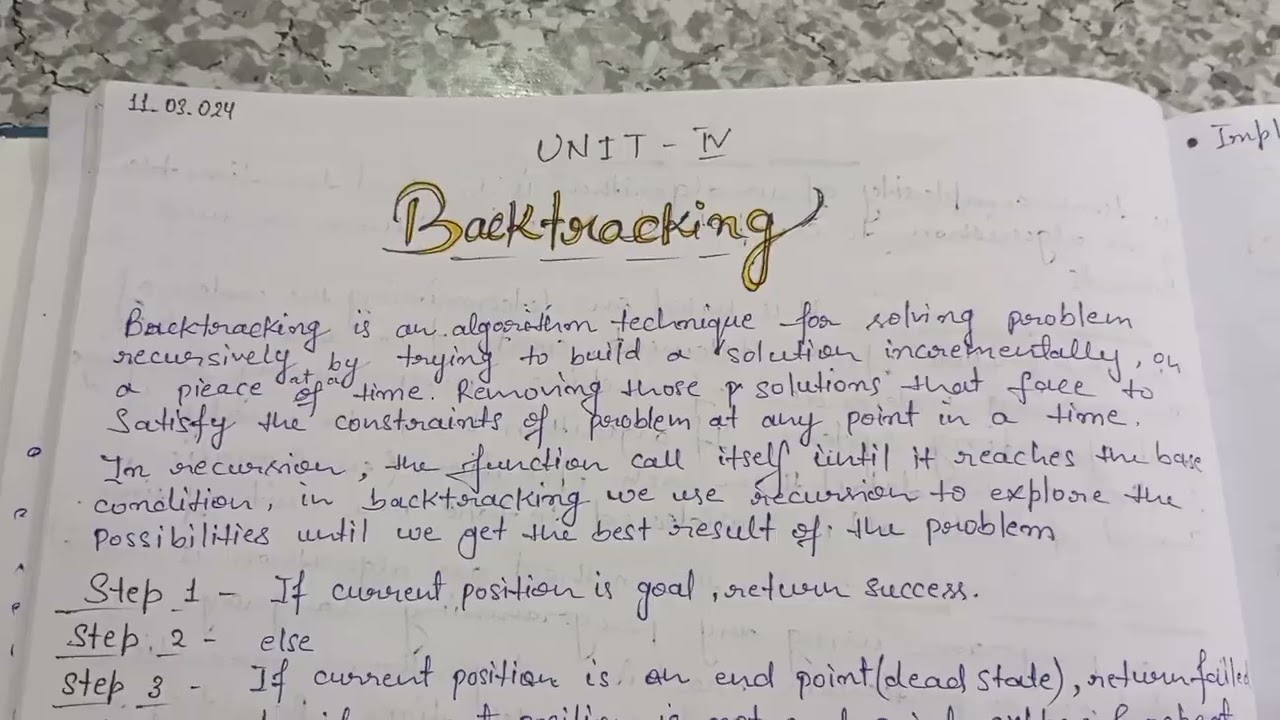 11-03-024
UNIT - IV
Backtracking
Backtracking is an algorithm technique for solving problem
recursively by trying to build a solution incrementally, on
at a
a pieace of time. Removing those solutions that face to
Satisfy the constraints of problem at any point in a time.
In recursion, the function call itself until it reaches the base
condition, in backtracking we use recursion to explore the
possibilities until we get the best result of the problem
Step 1 - If current position is goal, return success.
Step 2 - else
Step 3 - If current position is an end point (dead state), return failed
• Impl